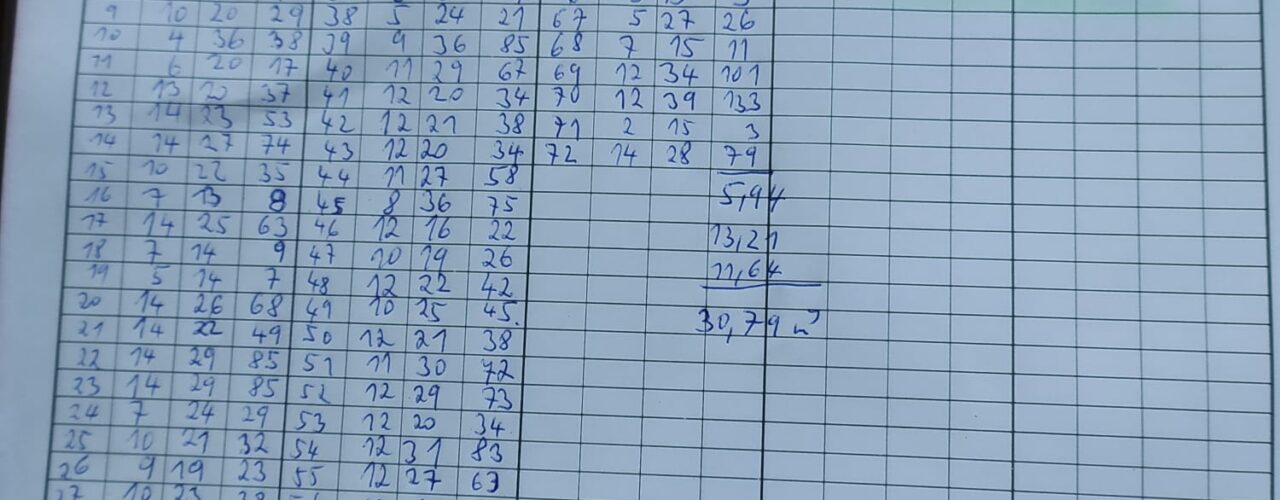 9 10 20 29 38 5 24 21 67 5 27 26
10 4 36 38 39 9 36 85 68 7 15 11
11 6 20 17 40 11 29 67 69 12 34 101
12 13 20 37 41 12 20 34 70 12 39 133
13 14 23 53 42 12 21 38 71 2 15 3
14 14 27 74 43 12 20 34 72 14 28 79
15 10 22 35 44 11 27 58
16 7 13 8 45 8 36 75 5,94
17 14 25 63 46 12 16 22 13,21
18 7 14 9 47 10 19 26 11,64
19 5 14 7 48 12 22 42
20 14 26 68 49 10 25 45. 30,79 m³
21 14 22 49 50 12 21 38
22 14 29 85 51 11 30 72
23 14 29 85 52 12 29 73
24 7 24 29 53 12 20 34
25 10 21 32 54 12 31 83
26 9 19 23 55 12 27 63
27 10 23